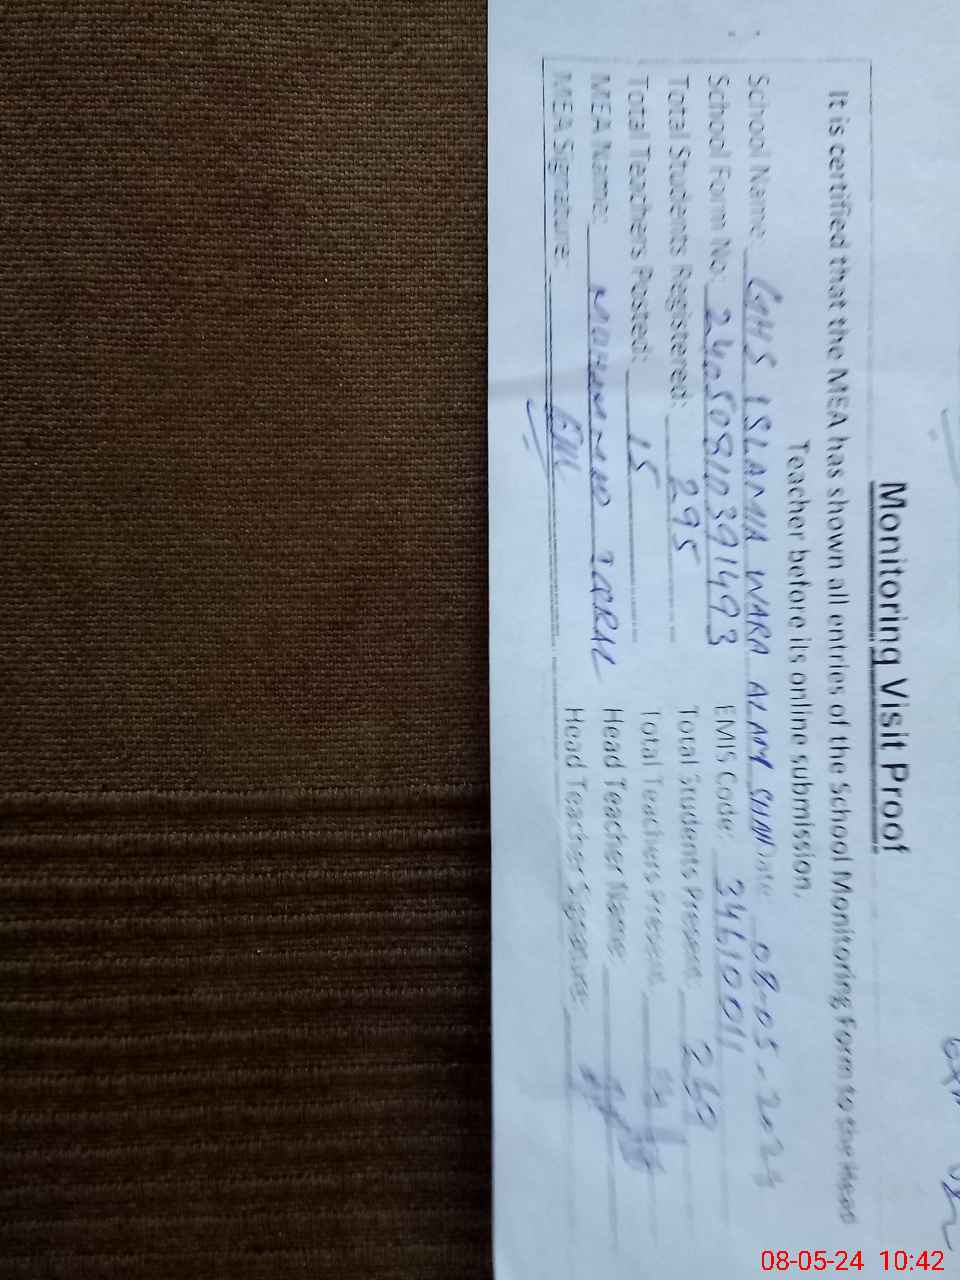 Monitoring Visit Proof
It is certified that the MEA has shown all entries of the School Monitoring Form to the Head
Teacher before its online submission.
School Name: GHS ISLAMIA WARA ALAM SHAH Date: 08-05-2024
School Form No: EMIS Code: 34610011
Total Students Registered: 295 Total Students Present:
Total Teachers Posted: 15 Total Teachers Present:
MEA Name: MOHAMMAD Head Teacher Name:
MEA Signature: Head Teacher Signature:
08-05-24 10:42